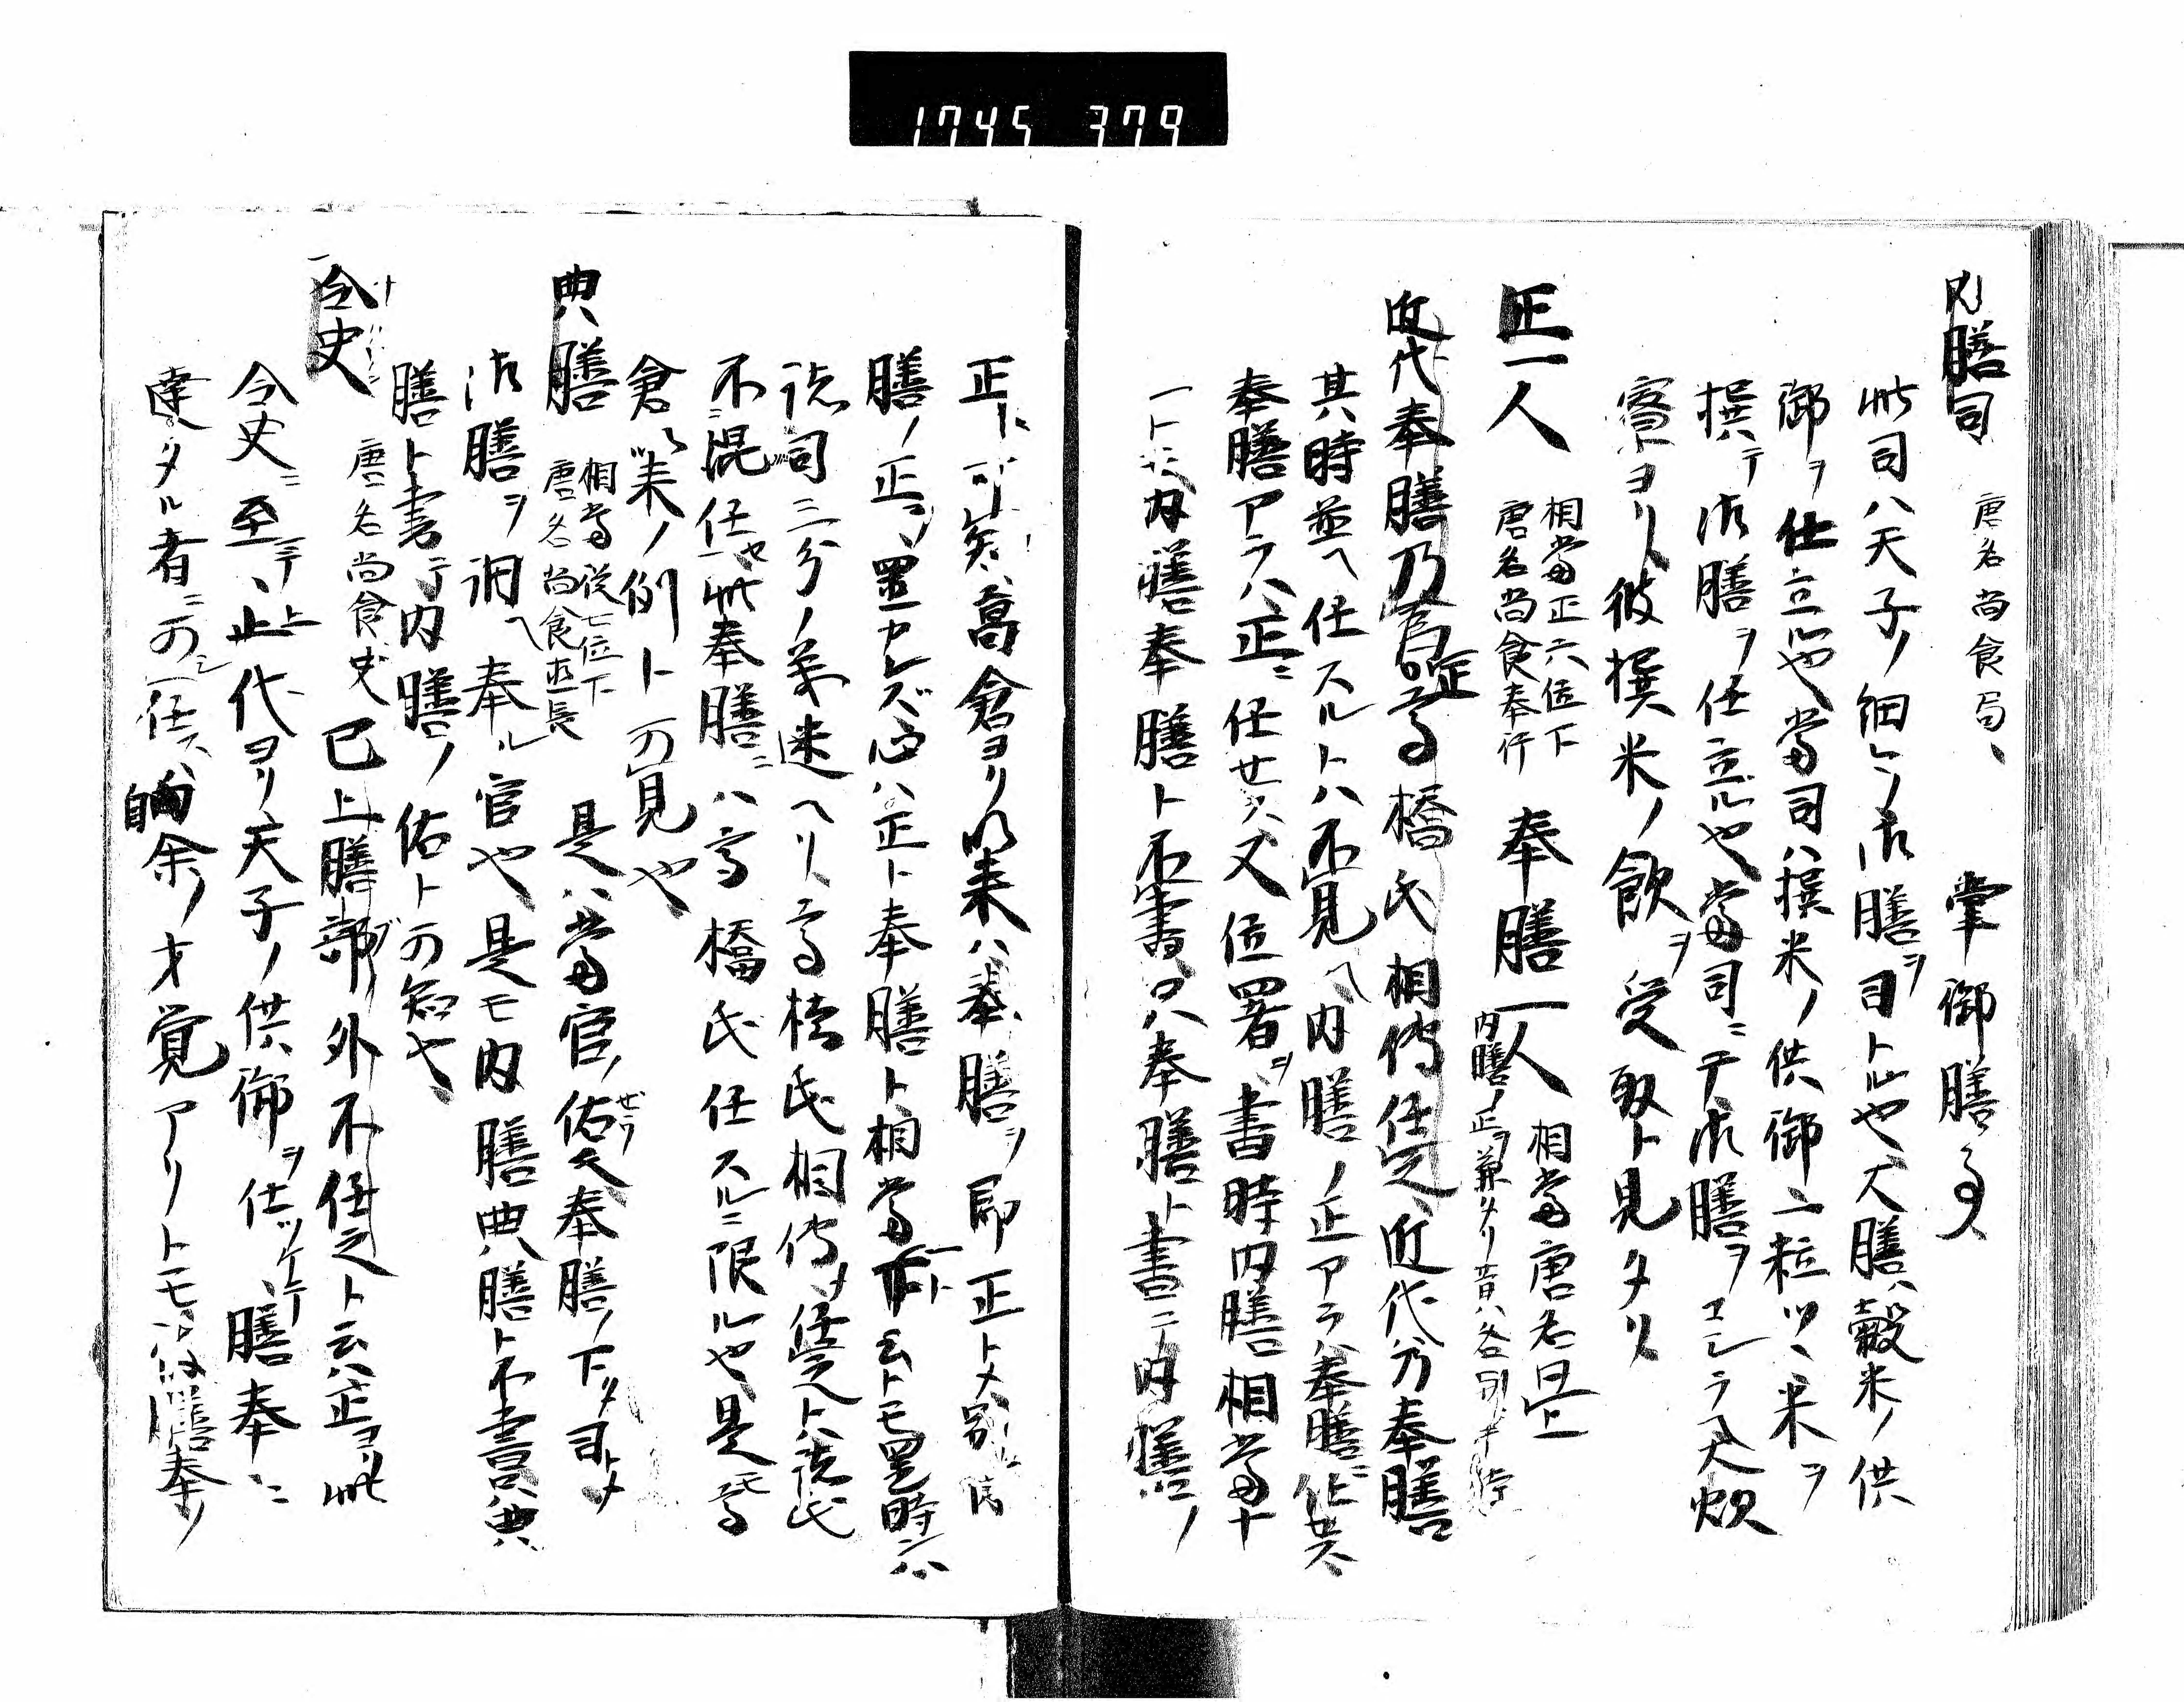 1745 379
内膳司 唐名尚食局、 掌御膳事
此司ハ天子ノ細シク御膳ヲ司トル也大膳ハ穀米ノ供
御ヲ仕立ル也當司ハ撰米ノ供御二粒ツヽ米ヲ
撰テ御膳ヲ仕立ル也當司ニテ御膳ヲコシラヘ大炊
寮ヨリ彼撰米ノ飲ヲ受取ト見タリ
正一人 相當正六位下 唐名尚食奉行 奉膳一人 相當唐名同上
内膳ノ正ヲ兼タリ昔ハ各別
近代奉膳乃官正高橋氏相傳任之、近代分奉膳
其時並ヘ任スルトハ不見ヘ内膳ノ正アラハ奉膳ニ任セス
奉膳アラハ正ニ任セス又位署ヲ書時内膳相當十
一ト内膳奉膳ト不書只奉膳ト書テ内膳ノ
正ト可矣高倉ヨリ以来ハ奉膳ヲ即正トメ別
膳ノ正ヲ置カレズ心ハ正ト奉膳ト相當一ト云トモ置時ハ
諸司三分ノ義迷ヘリ高橋氏相傳メ任之ト諸氏
不混任也此奉膳ニハ高橋氏任スルニ限ル也是モ高
倉以来ノ例ト可見也
典膳 相當従七位下 唐名尚食直長 是ハ當官ノ佑奉膳ノ下タ司トメ
御膳ヲ調ヘ奉ル官也是モ内膳典膳ト不書只典
膳ト書テ内膳ノ佑ト可知也、
令史 唐名尚食史 已上膳部ノ外不任之ト云ハ正ヨリ此
令史ニ至テ上代ヨリ天子ノ供御ヲ仕ツケテ膳奉ニ
達タル者ニ可任ス、自余ノ才覚アリトモ膳奉ノ